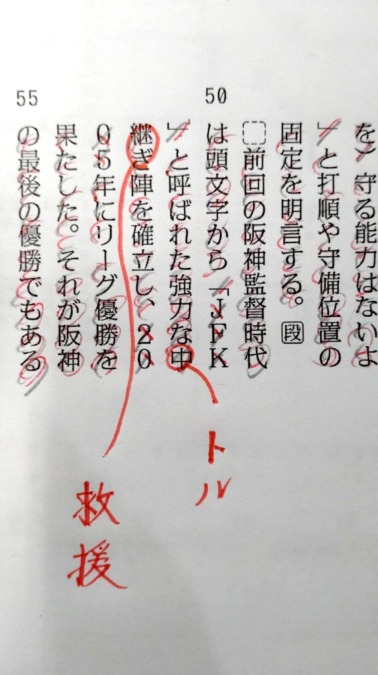 を）守る能力はないよ
」と打順や守備位置の
固定を明言する。段
前回の阪神監督時代
50
は頭文字から「JFK
」と呼ばれた強力な中
継ぎ陣を確立し、20
05年にリーグ優勝を
果たした。それが阪神
55
の最後の優勝でもある
トル
救援